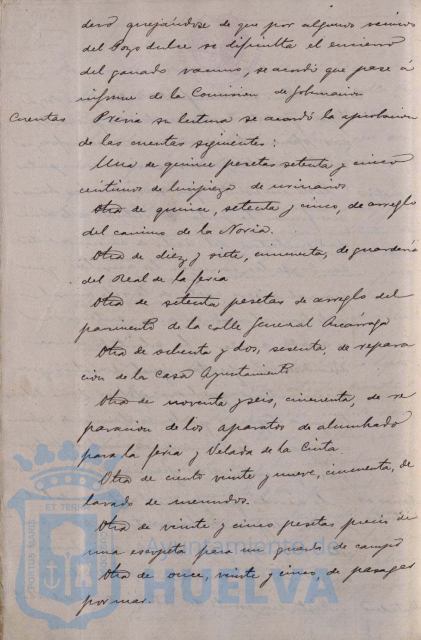 dero quejándose de que por algunos vecinos
del Pozo dulce se dificulta el encierro
del ganado vacuno, se acordó que pase á
informe de la Comision de Gobernacion
Cuentas
Previa su lectura se acordó la aprobacion
de las cuentas siguientes:
Una de quince pesetas setenta y cinco
céntimos de limpieza de urinarios
Otra de quince, setenta y cinco, de arreglo
del camino de la Noria.
Otra de diez y siete, cincuenta, de guardería
del Real de la feria
Otra de setenta pesetas de arreglo del
pavimento de la calle General Azcárraga
Otra de ochenta y dos, sesenta, de repara
ción de la Casa Ayuntamiento
Otra de noventa y seis, cincuenta, de re
paracion de los aparatos de alumbrado
para la feria y Velada de la Cinta
Otra de ciento veinte y nueve, cincuenta, de
lavado de menudos.
Otra de veinte y cinco pesetas precio de
una escopeta para un guarda de campo
Otra de once, veinte y cinco, de pasages
por mar.
Ayuntamiento de
HUELVA